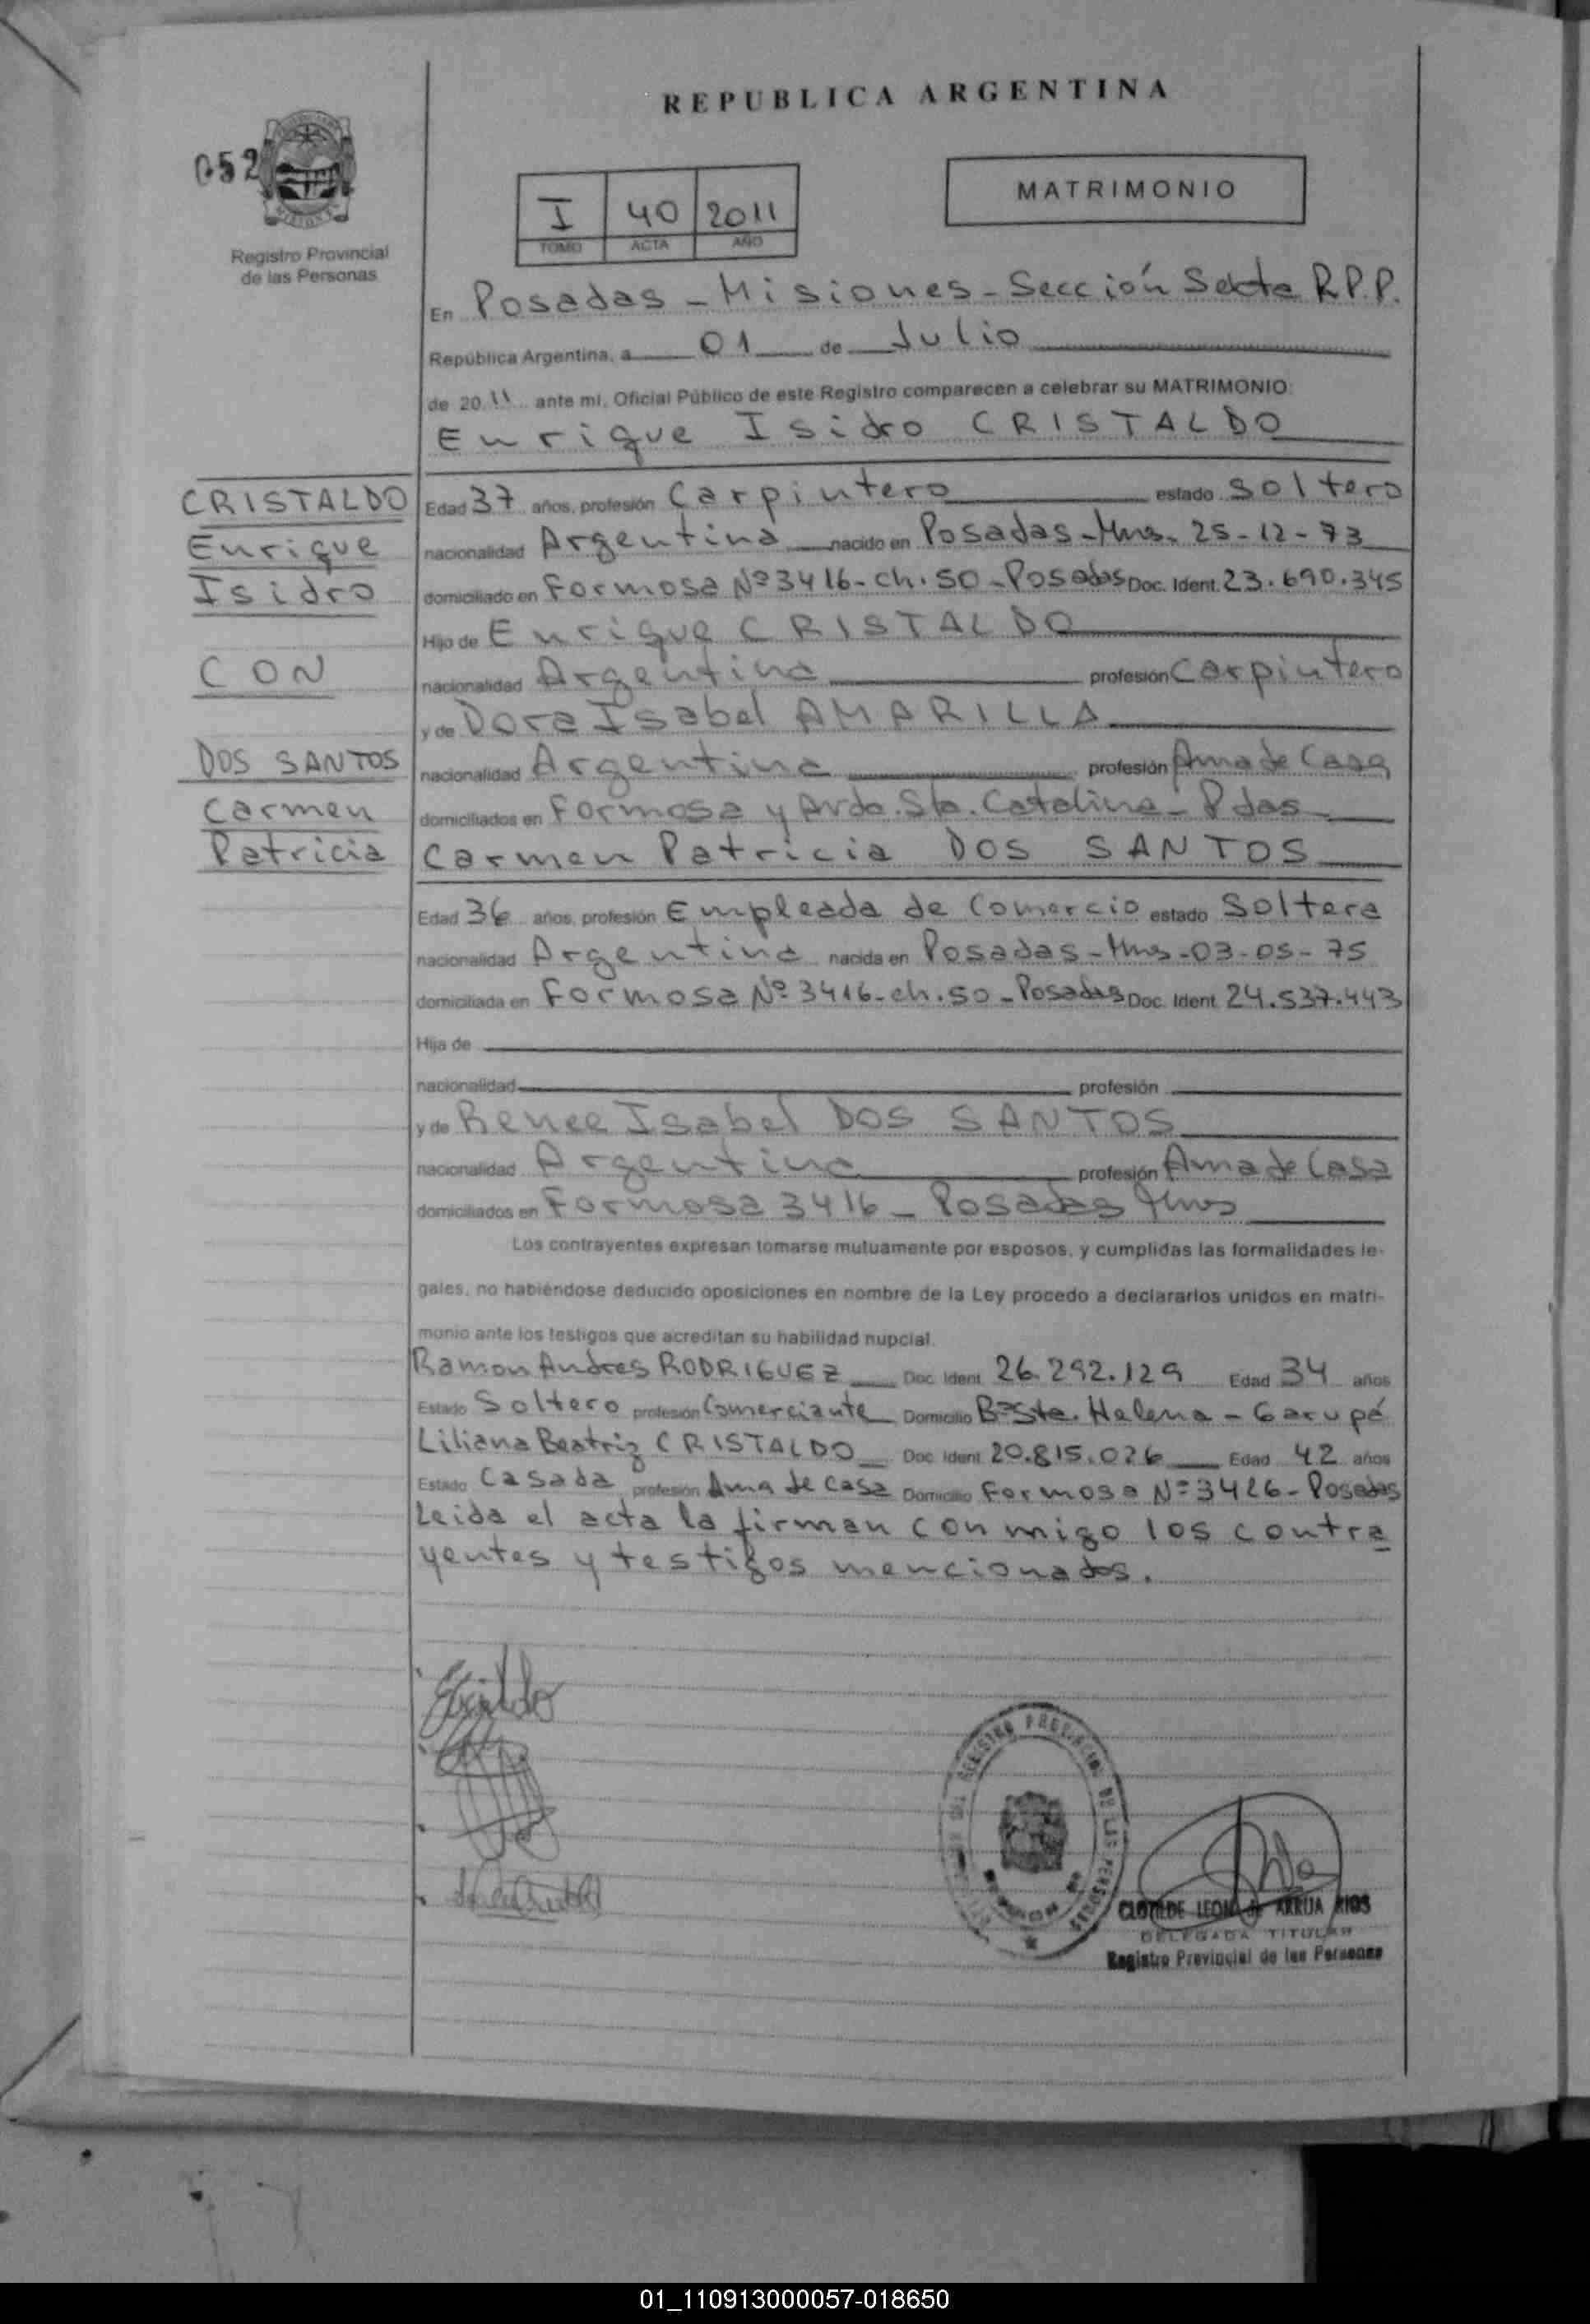 REPUBLICA ARGENTINA
052
Registro Provincial
de las Personas
I 40 2011
TOMO ACTA AÑO
MATRIMONIO
En Posadas - Misiones - Sección Sexta R.P.P.
República Argentina, a 01 de Julio
de 2011 ante mi, Oficial Público de este Registro comparecen a celebrar su MATRIMONIO:
Enrique Isidro CRISTALDO
CRISTALDO
Enrique
Isidro
CON
DOS SANTOS
Carmen
Patricia
Edad 37 años, profesión Carpintero estado Soltero
nacionalidad Argentina nacido en Posadas - Mnes. 25-12-73
domiciliado en Formosa Nº 3416 - ch. 50 - Posadas Doc. Ident. 23.690.345
Hijo de Enrique CRISTALDO
nacionalidad Argentina profesión Carpintero
y de Dora Isabel AMARILLA
nacionalidad Argentina profesión Ama de Casa
domiciliados en Formosa y Avda. Sta. Catalina - Pdas
Carmen Patricia DOS SANTOS
Edad 36 años, profesión Empleada de Comercio estado Soltera
nacionalidad Argentina nacida en Posadas - Mnes - 03-05-75
domiciliada en Formosa Nº 3416 - ch. 50 - Posadas Doc. Ident. 24.537.443
Hija de
nacionalidad profesión
y de Renee Isabel DOS SANTOS
nacionalidad Argentina profesión Ama de Casa
domiciliados en Formosa 3416 - Posadas Mnes
Los contrayentes expresan tomarse mutuamente por esposos, y cumplidas las formalidades le-
gales, no habiéndose deducido oposiciones en nombre de la Ley procedo a declararlos unidos en matri-
monio ante los testigos que acreditan su habilidad nupcial.
Ramon Andres RODRIGUEZ Doc. Ident. 26.292.129 Edad 34 años
Estado Soltero profesión Comerciante Domicilio Bº Sta. Helena - Garupá
Liliana Beatriz CRISTALDO Doc. Ident. 20.815.026 Edad 42 años
Estado Casada profesión Ama de Casa Domicilio Formosa Nº 3426 - Posadas
Leida el acta la firman conmigo los contra
yentes y testigos mencionados.
REGISTRO PROVINCIAL DE LAS PERSONAS
CLOTILDE LEONA de ARRUA RIOS
DELEGADA TITULAR
Registro Provincial de las Personas
01_110913000057-018650